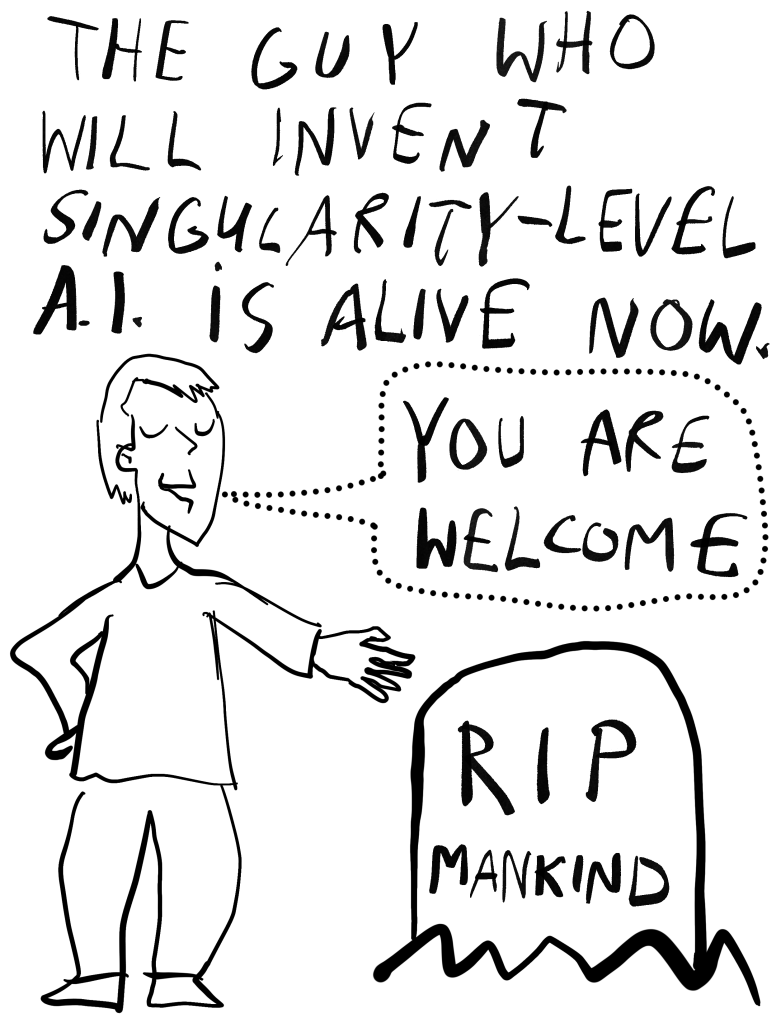 THE GUY WHO
WILL INVENT
SINGULARITY-LEVEL
A.I. IS ALIVE NOW.
YOU ARE
WELCOME
RIP
MANKIND